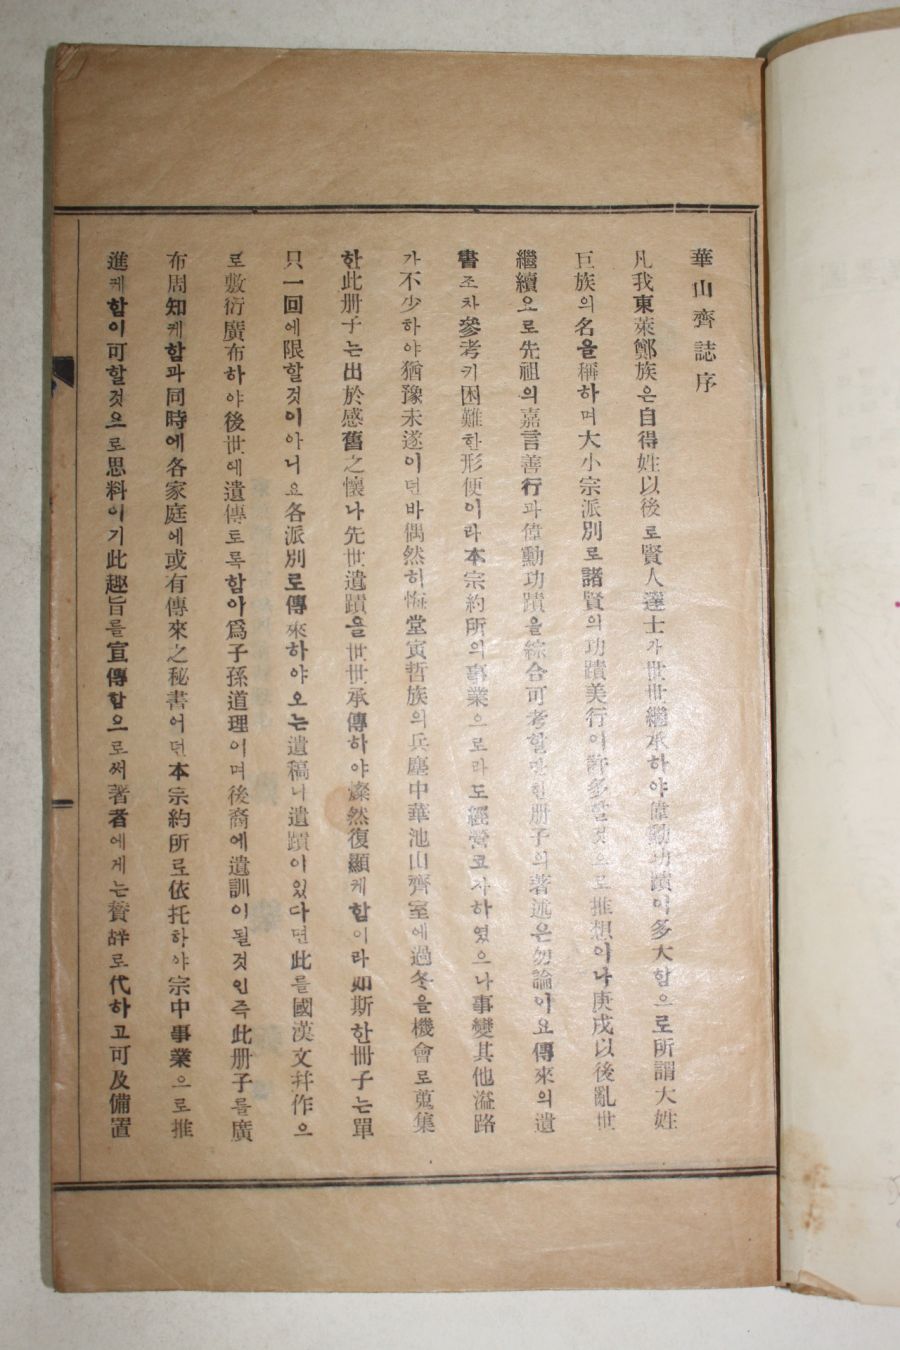 華山齊誌序
凡我東萊鄭族은自得姓以後로賢人達士가世世繼承하야偉勳功蹟이多大함으로所謂大姓
巨族의名을稱하며大小宗派別로諸賢의功蹟美行이許多할것으로推想이나庚戌以後亂世
繼續으로先祖의嘉言善行과偉勳功蹟을綜合可考할만한册子의著述은勿論이요傳來의遺
書조차參考키困難한形便이라本宗約所의事業으로라도經營코자하였으나事變其他溢路
가不少하야猶豫未遂이던바偶然히悔堂寅哲族의兵塵中華池山齊室에過冬을機會로蒐集
한此册子는出於感舊之懷나先世遺蹟을世世承傳하야燦然復顯케함이라如斯한冊子는單
只一回에限할것이아니요各派別로傳來하야오는遺稿나遺蹟이있다던此를國漢文幷作으
로敷衍廣布하야後世에遺傳토록함아爲子孫道理이며後裔에遺訓이될것인즉此册子를廣
布周知케함과同時에各家庭에或有傳來之秘書어던本宗約所로依托하야宗中事業으로推
進케함이可할것으로思料이기此趣旨를宣傳함으로써著者에게는贊辞로代하고可及備置